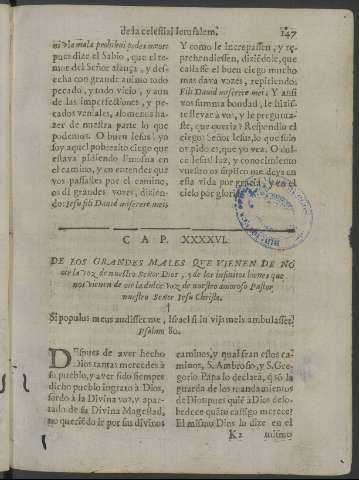 de la celestial Ierusalem. 147
pues dize el Sabio, que el te-
mor del Señor aleuça, y des-
hecha con grande animo todo
pecado, y todo vicio, y aun
de las imperfectiones, y pe-
cados veniales, alomenos ha-
zer de nuestra parte lo que
podemos. O buen Iesus! yo
soy aquel pobrezito ciego que
estaua pidiendo limosna en
el camino, y en entender que
vos passastes por el camino,
os di grandes vozes, dizien-
do: Iesu fili Dauid miserere mei.
Y como le increpassen, y re-
prehendiessen, diziendole, que
callasse el buen ciego mucho
mas daua vozes, repitiendo:
Fili Dauid miserere mei: Y ansi
vos summa bondad, le hizis-
te lleuar à vos, y le pregunta-
ste, que queria? Respondio el
ciego: Señor Iesus, lo que solo
os pido es, que yo vea. O dul-
ce Iesus! luz, y conocimiento
vuestro os suplico me deys en
esta vida por gracia, y en el
cielo por gloria.
C A P. XXXXVI.
DE LOS GRANDES MALES QUE VIENEN DE NO
oir la voz de nuestro Señor Dios, y de los infinitos bienes que
nos vienen de oir la dulce voz de nuestro amoroso Pastor
nuestro Señor Iesu Christo.
Si populus meus audisset me, Israel si in vijs meis ambulasset.
Psalm 80.
DEspues de aver hecho
Dios tantas mercedes à
su pueblo, y aver sido siempre
dicho pueblo ingrato à Dios,
sordo à la Diuina voz, y apar-
tado de su Diuina Magestad,
no queriẽdo ir por sus diuinos
caminos, y qual sean estos ca-
minos, S. Ambrosio, y S. Gre-
gorio Papa lo declarã, q̃ sõ la
guarda de los mandamientos
de Dios: pues quiẽ à Dios deso-
bedece quãto castigo merece?
El mismo Dios lo dize en el
K2 mismo